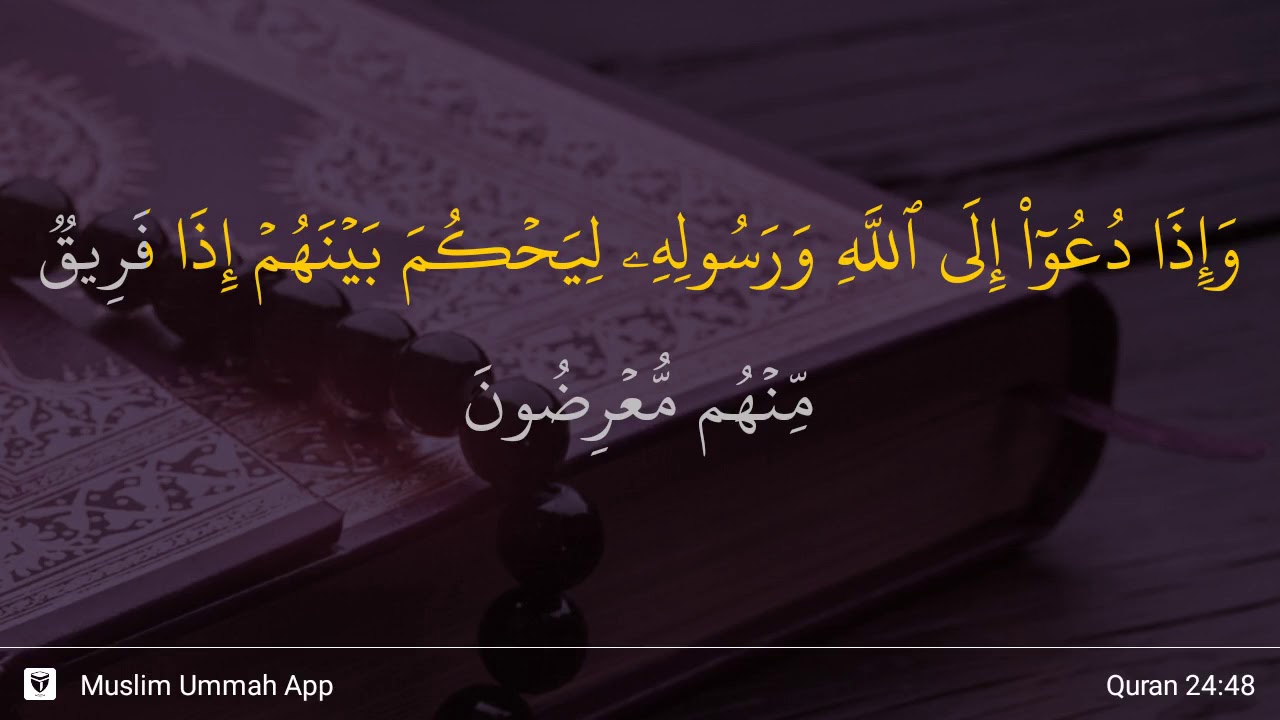 وَإِذَا دُعُوٓا۟ إِلَى ٱللَّهِ وَرَسُولِهِۦ لِيَحْكُمَ بَيْنَهُمْ إِذَا فَرِيقٌۭ
مِّنْهُم مُّعْرِضُونَ
Muslim Ummah App
Quran 24:48